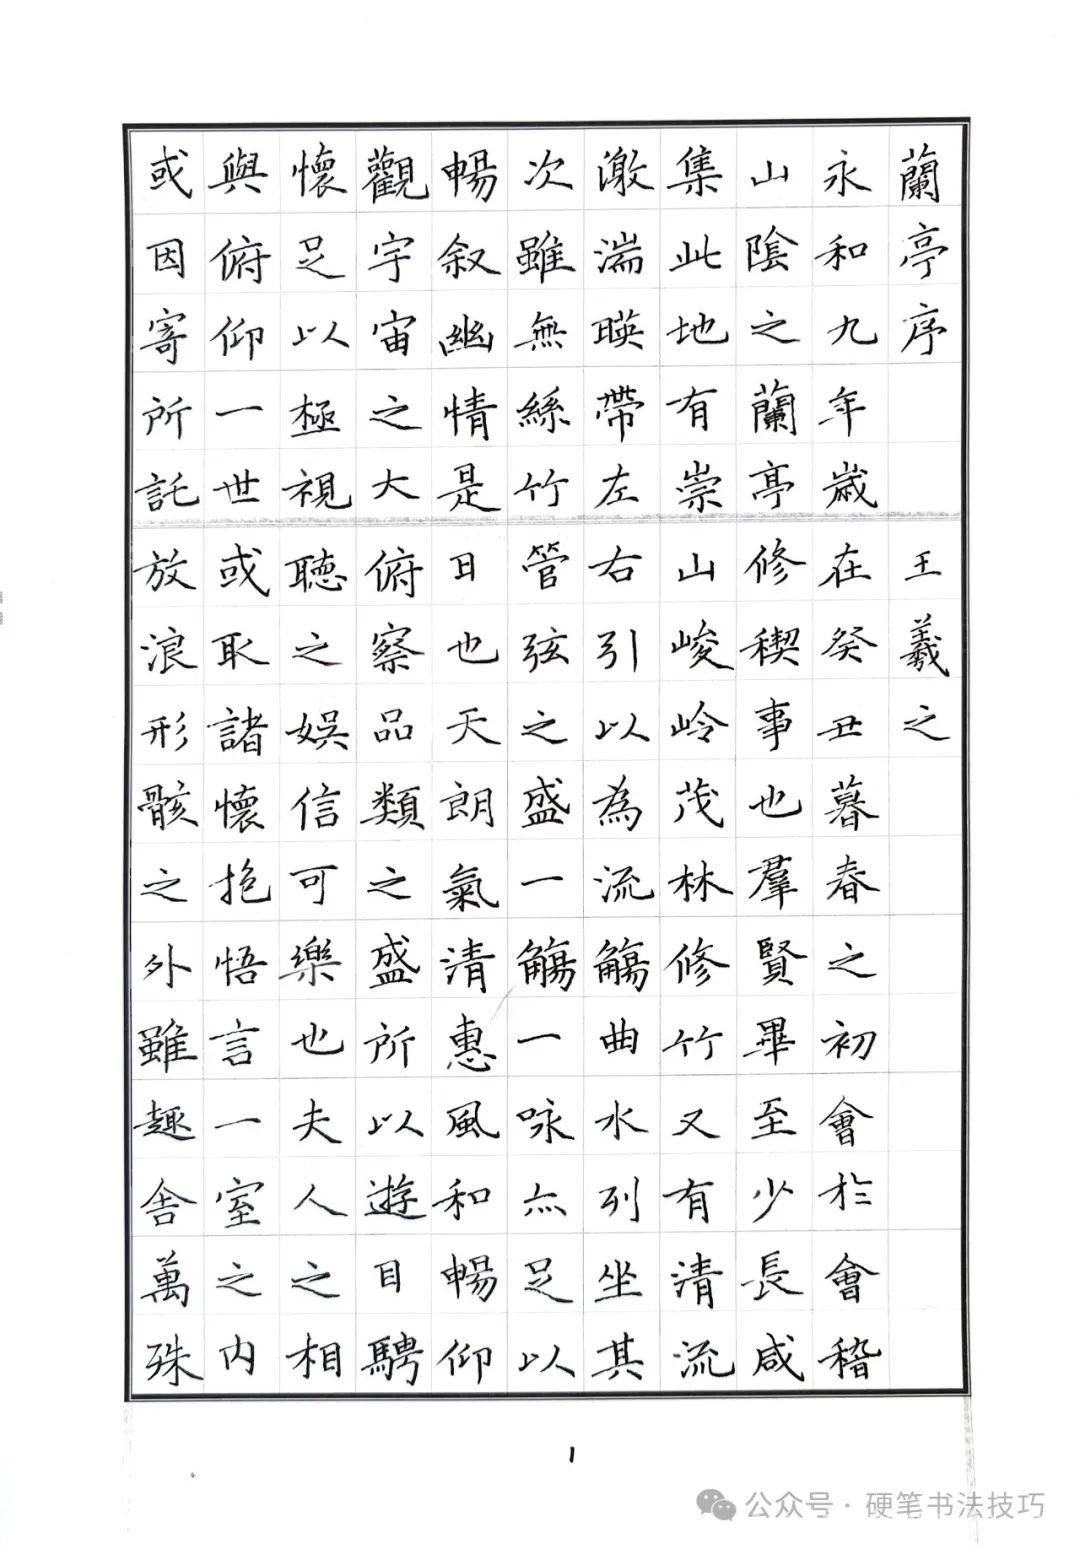 蘭亭序 王羲之
永和九年歲在癸丑暮春之初會於會稽
山陰之蘭亭修稧事也羣賢畢至少長咸
集此地有崇山峻岭茂林修竹又有清流
激湍暎帶左右引以為流觴曲水列坐其
次雖無絲竹管弦之盛一觴一咏亦足以
暢叙幽情是日也天朗氣清惠風和暢仰
觀宇宙之大俯察品類之盛所以遊目騁
懷足以極視聽之娛信可樂也夫人之相
與俯仰一世或取諸懷抱悟言一室之內
或因寄所託放浪形骸之外雖趣舍萬殊
1
公众号·硬笔书法技巧